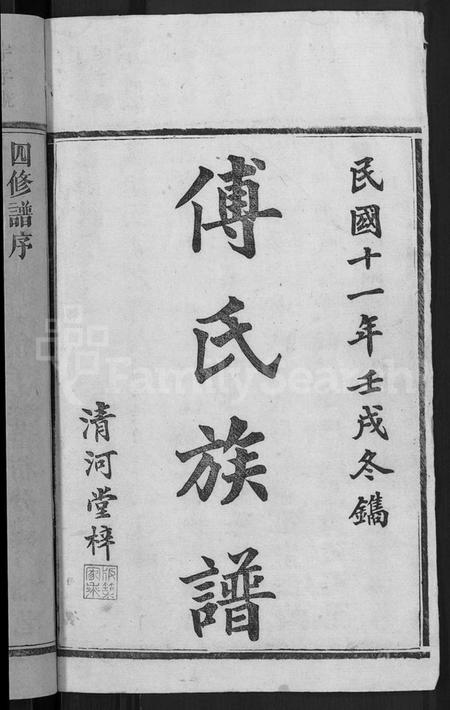 民國十一年壬戌冬鐫
傅氏族譜
清河堂梓
四修譜序
FamilySearch